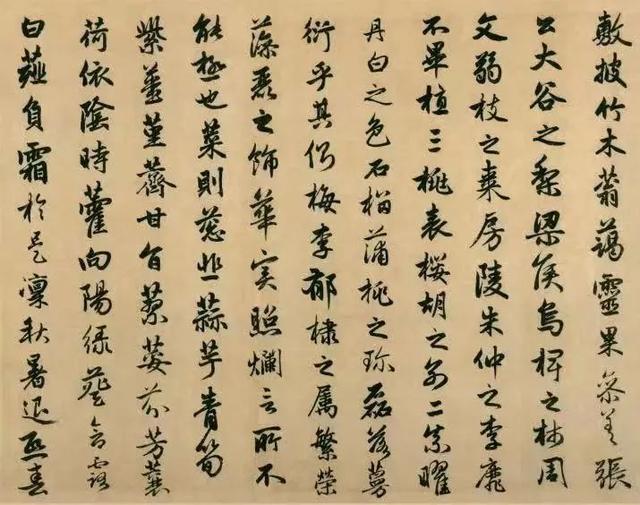 敷披竹木蓊蔼靈果參差張
公大谷之梨梁侯烏椑之柿周
文弱枝之棗房陵朱仲之李靡
不畢植三桃表櫻胡之別二柰曜
丹白之色石榴蒲桃之珍磊落蔓
衍乎其側梅李郁棣之属繁榮
藻麗之飾華实照爛言所不
能極也菜則葱韭蒜芋青筍
紫薑堇薺甘旨蓼荾芬芳蘘
荷依陰時藿向陽緑葵含露
白薤負霜於是凛秋暑退熙春